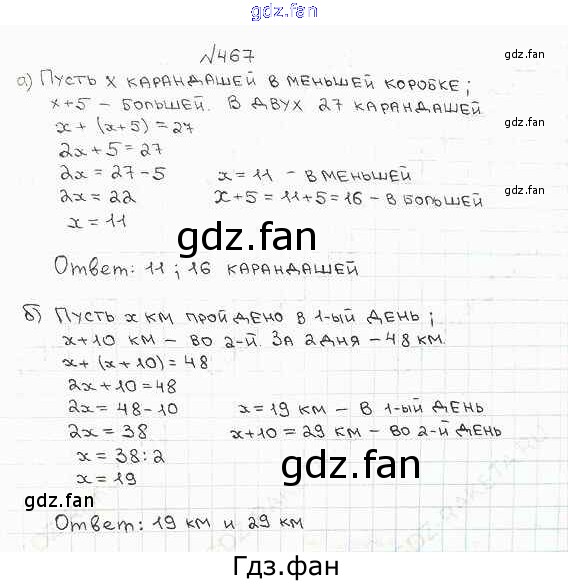 gdz.fan
№467
gdz.fan
а) Пусть х карандашей в меньшей коробке;
х+5 – большей. В двух 27 карандашей
gdz.fan
х + (х+5) = 27
2х + 5 = 27
2х = 27 - 5 х = 11 – в меньшей
2х = 22 х+5 = 11+5 = 16 – в большей
gdz.fan
х = 11
gdz.fan
Ответ: 11 ; 16 карандашей
б) Пусть х км пройдено в 1-ый день;
х+10 км – во 2-й. За 2 дня – 48 км.
gdz.fan
х + (х + 10) = 48
2х + 10 = 48
2х = 48 - 10 х = 19 км – в 1-ый день
2х = 38 х+10 = 29 км – во 2-й день
х = 38 : 2
gdz.fan
х = 19
gdz.fan
gdz.fan
Ответ: 19 км и 29 км
Гдз.фан